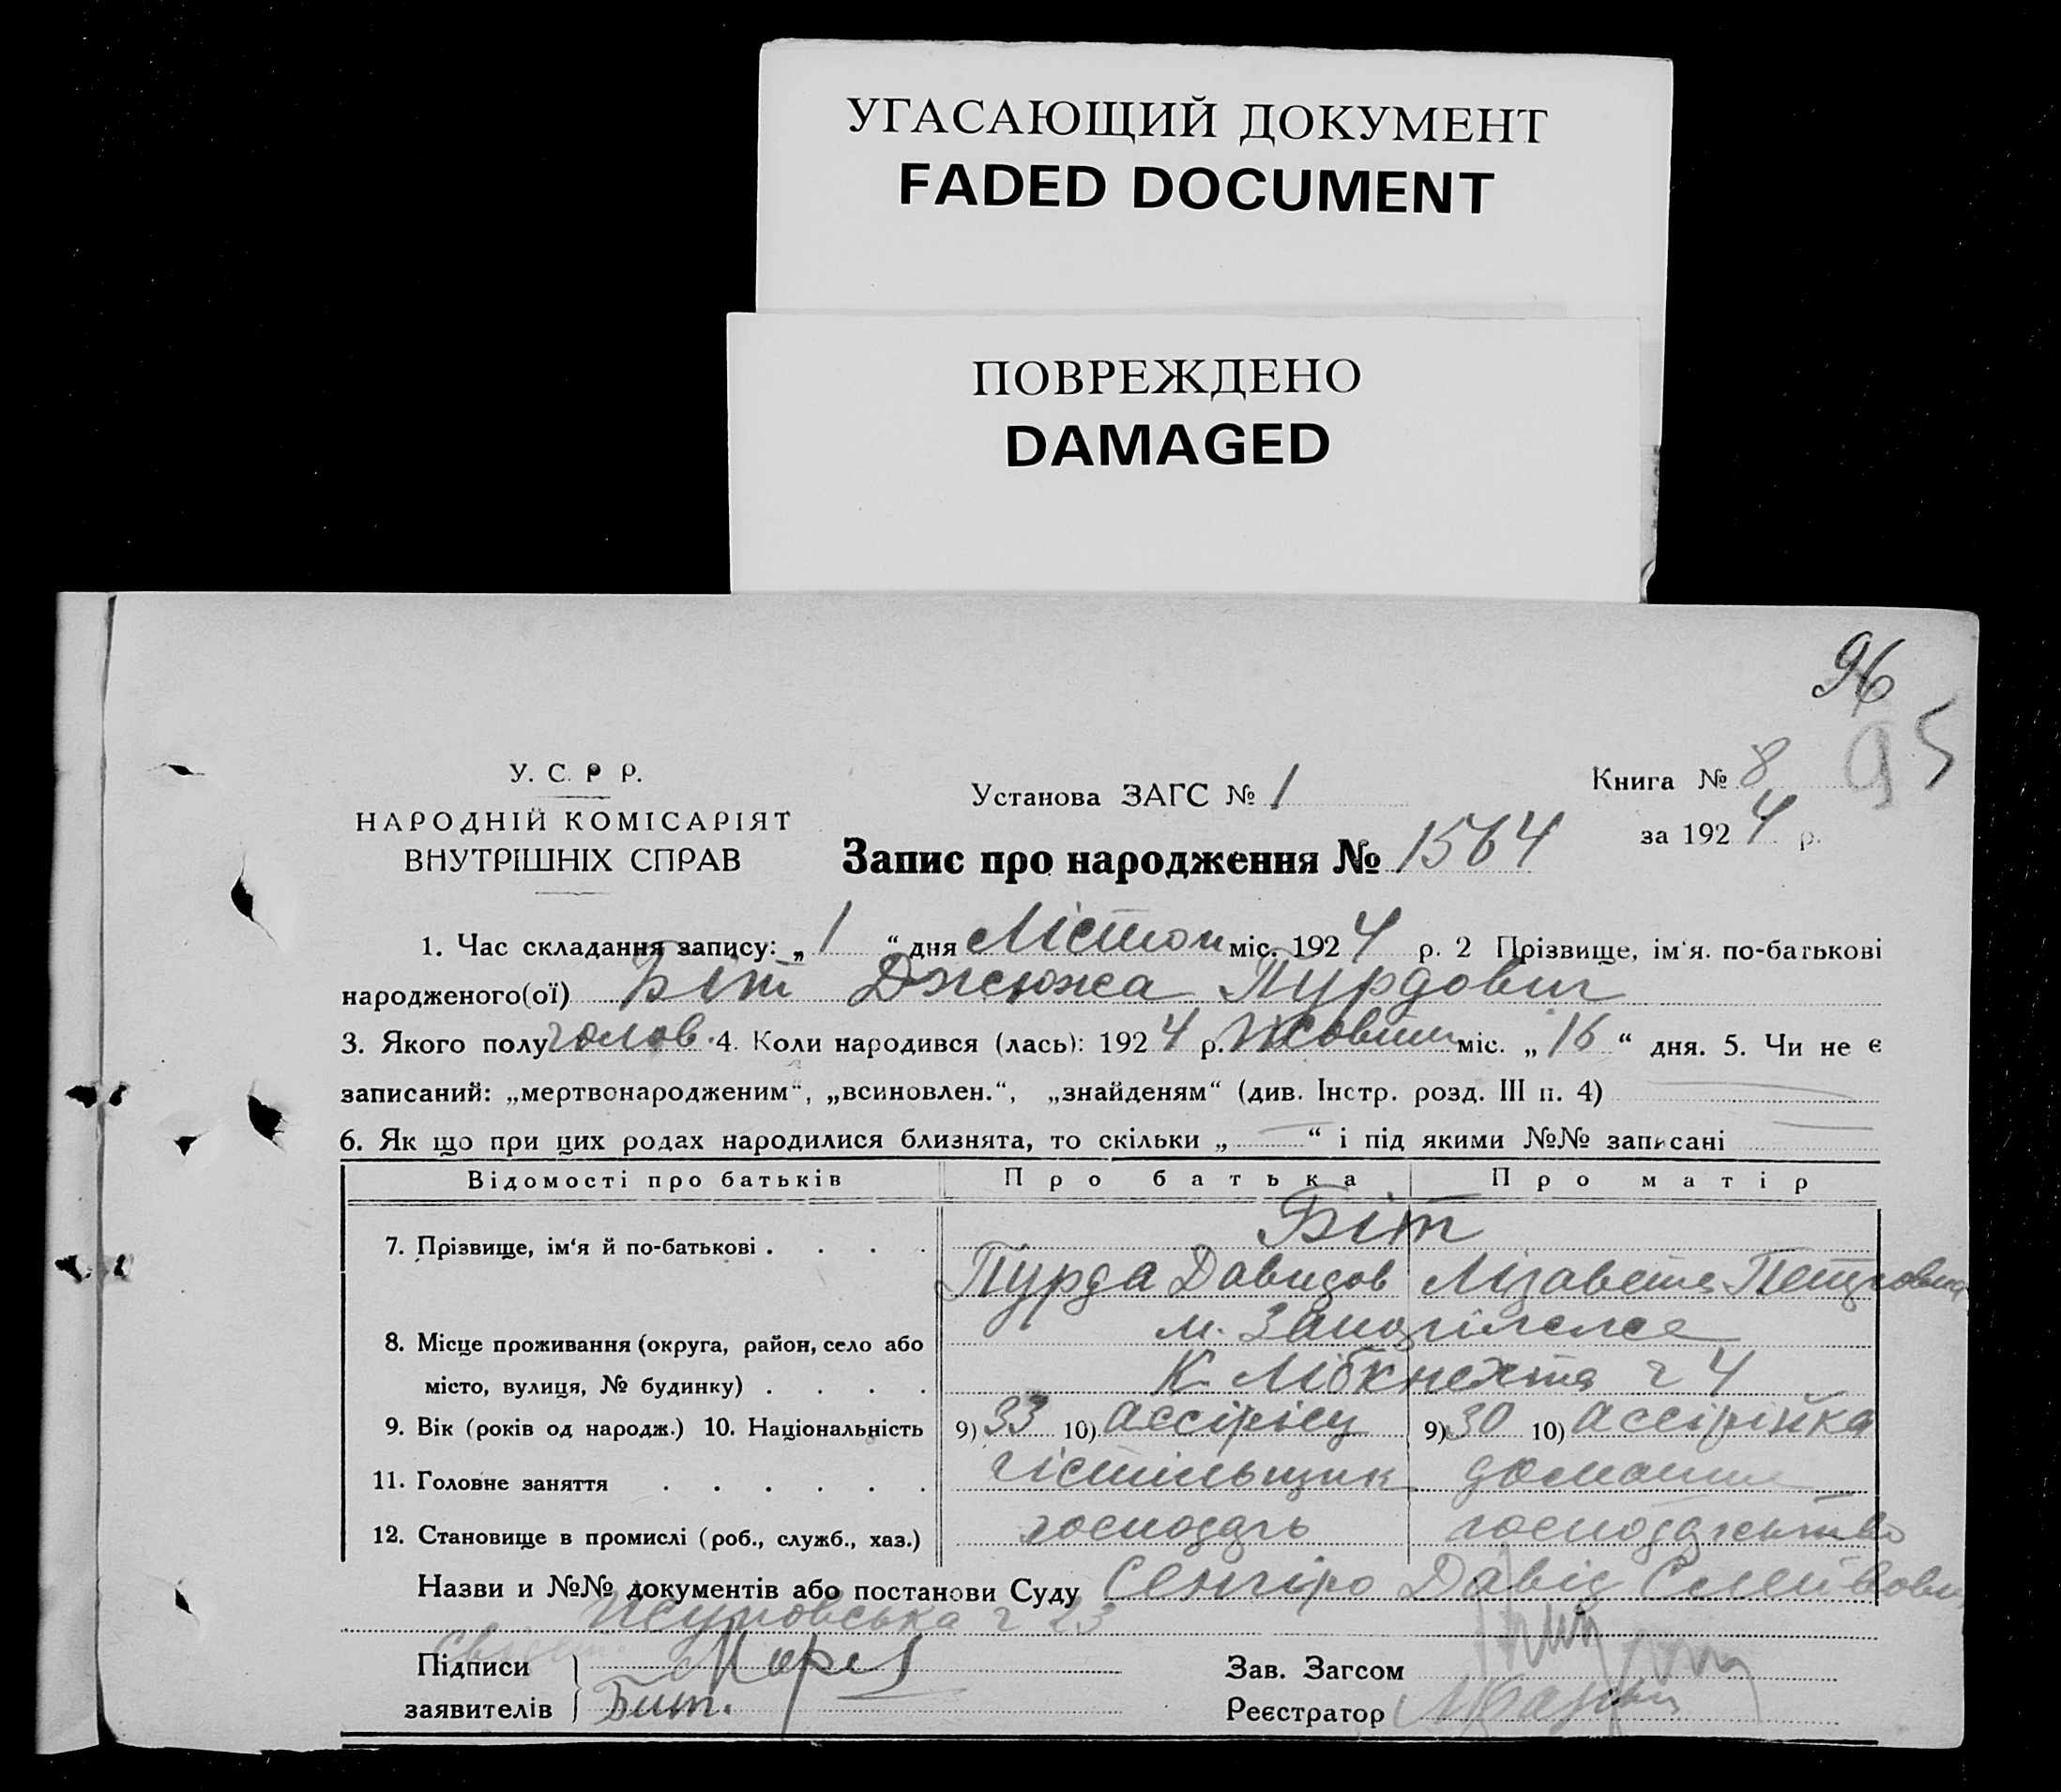 УГАСАЮЩИЙ ДОКУМЕНТ
FADED DOCUMENT
ПОВРЕЖДЕНО
DAMAGED
96
95
У. С. Р. Р.
НАРОДНІЙ КОМІСАРІЯТ
ВНУТРІШНІХ СПРАВ
Установа ЗАГС № 1
Книга № 8
за 1924 р.
Запис про народження № 1564
1. Час складання запису: „1“ дня Лістоп міс. 1924 р. 2 Прізвище, ім‘я. по-батькові
народженого(ої) Біт Джюжа Пурдович
3. Якого полу чолов. 4. Коли народився (лась): 1924 р. Жовтн міс. „16“ дня. 5. Чи не є
записаний: „мертвонародженим“, „всиновлен.“, „знайденям“ (див. Інстр. розд. III п. 4)
6. Як що при цих родах народилися близнята, то скільки „ — “ і під якими №№ записані
Відомості про батьків Про батька Про матір
Біт
7. Прізвище, ім‘я й по-батькові . . . .
Пурда Давидов Лізавета Петровна
8. Місце проживання (округа, район, село або м. Запоріжжє
місто, вулиця, № будинку) . . . . К. Лібкнехта ч 4
9. Вік (років од народж.) 10. Національність 9) 33 10) ассірієц 9) 30 10) ассірійка
11. Головне заняття . . . . . . чістильщик домашнє
12. Становище в промислі (роб., служб., хаз.) господарь господарство
Назви и №№ документів або постанови Суду Давід
ч 23
Підписи
Зав. Загсом
заявителів Бит.
Реєстратор